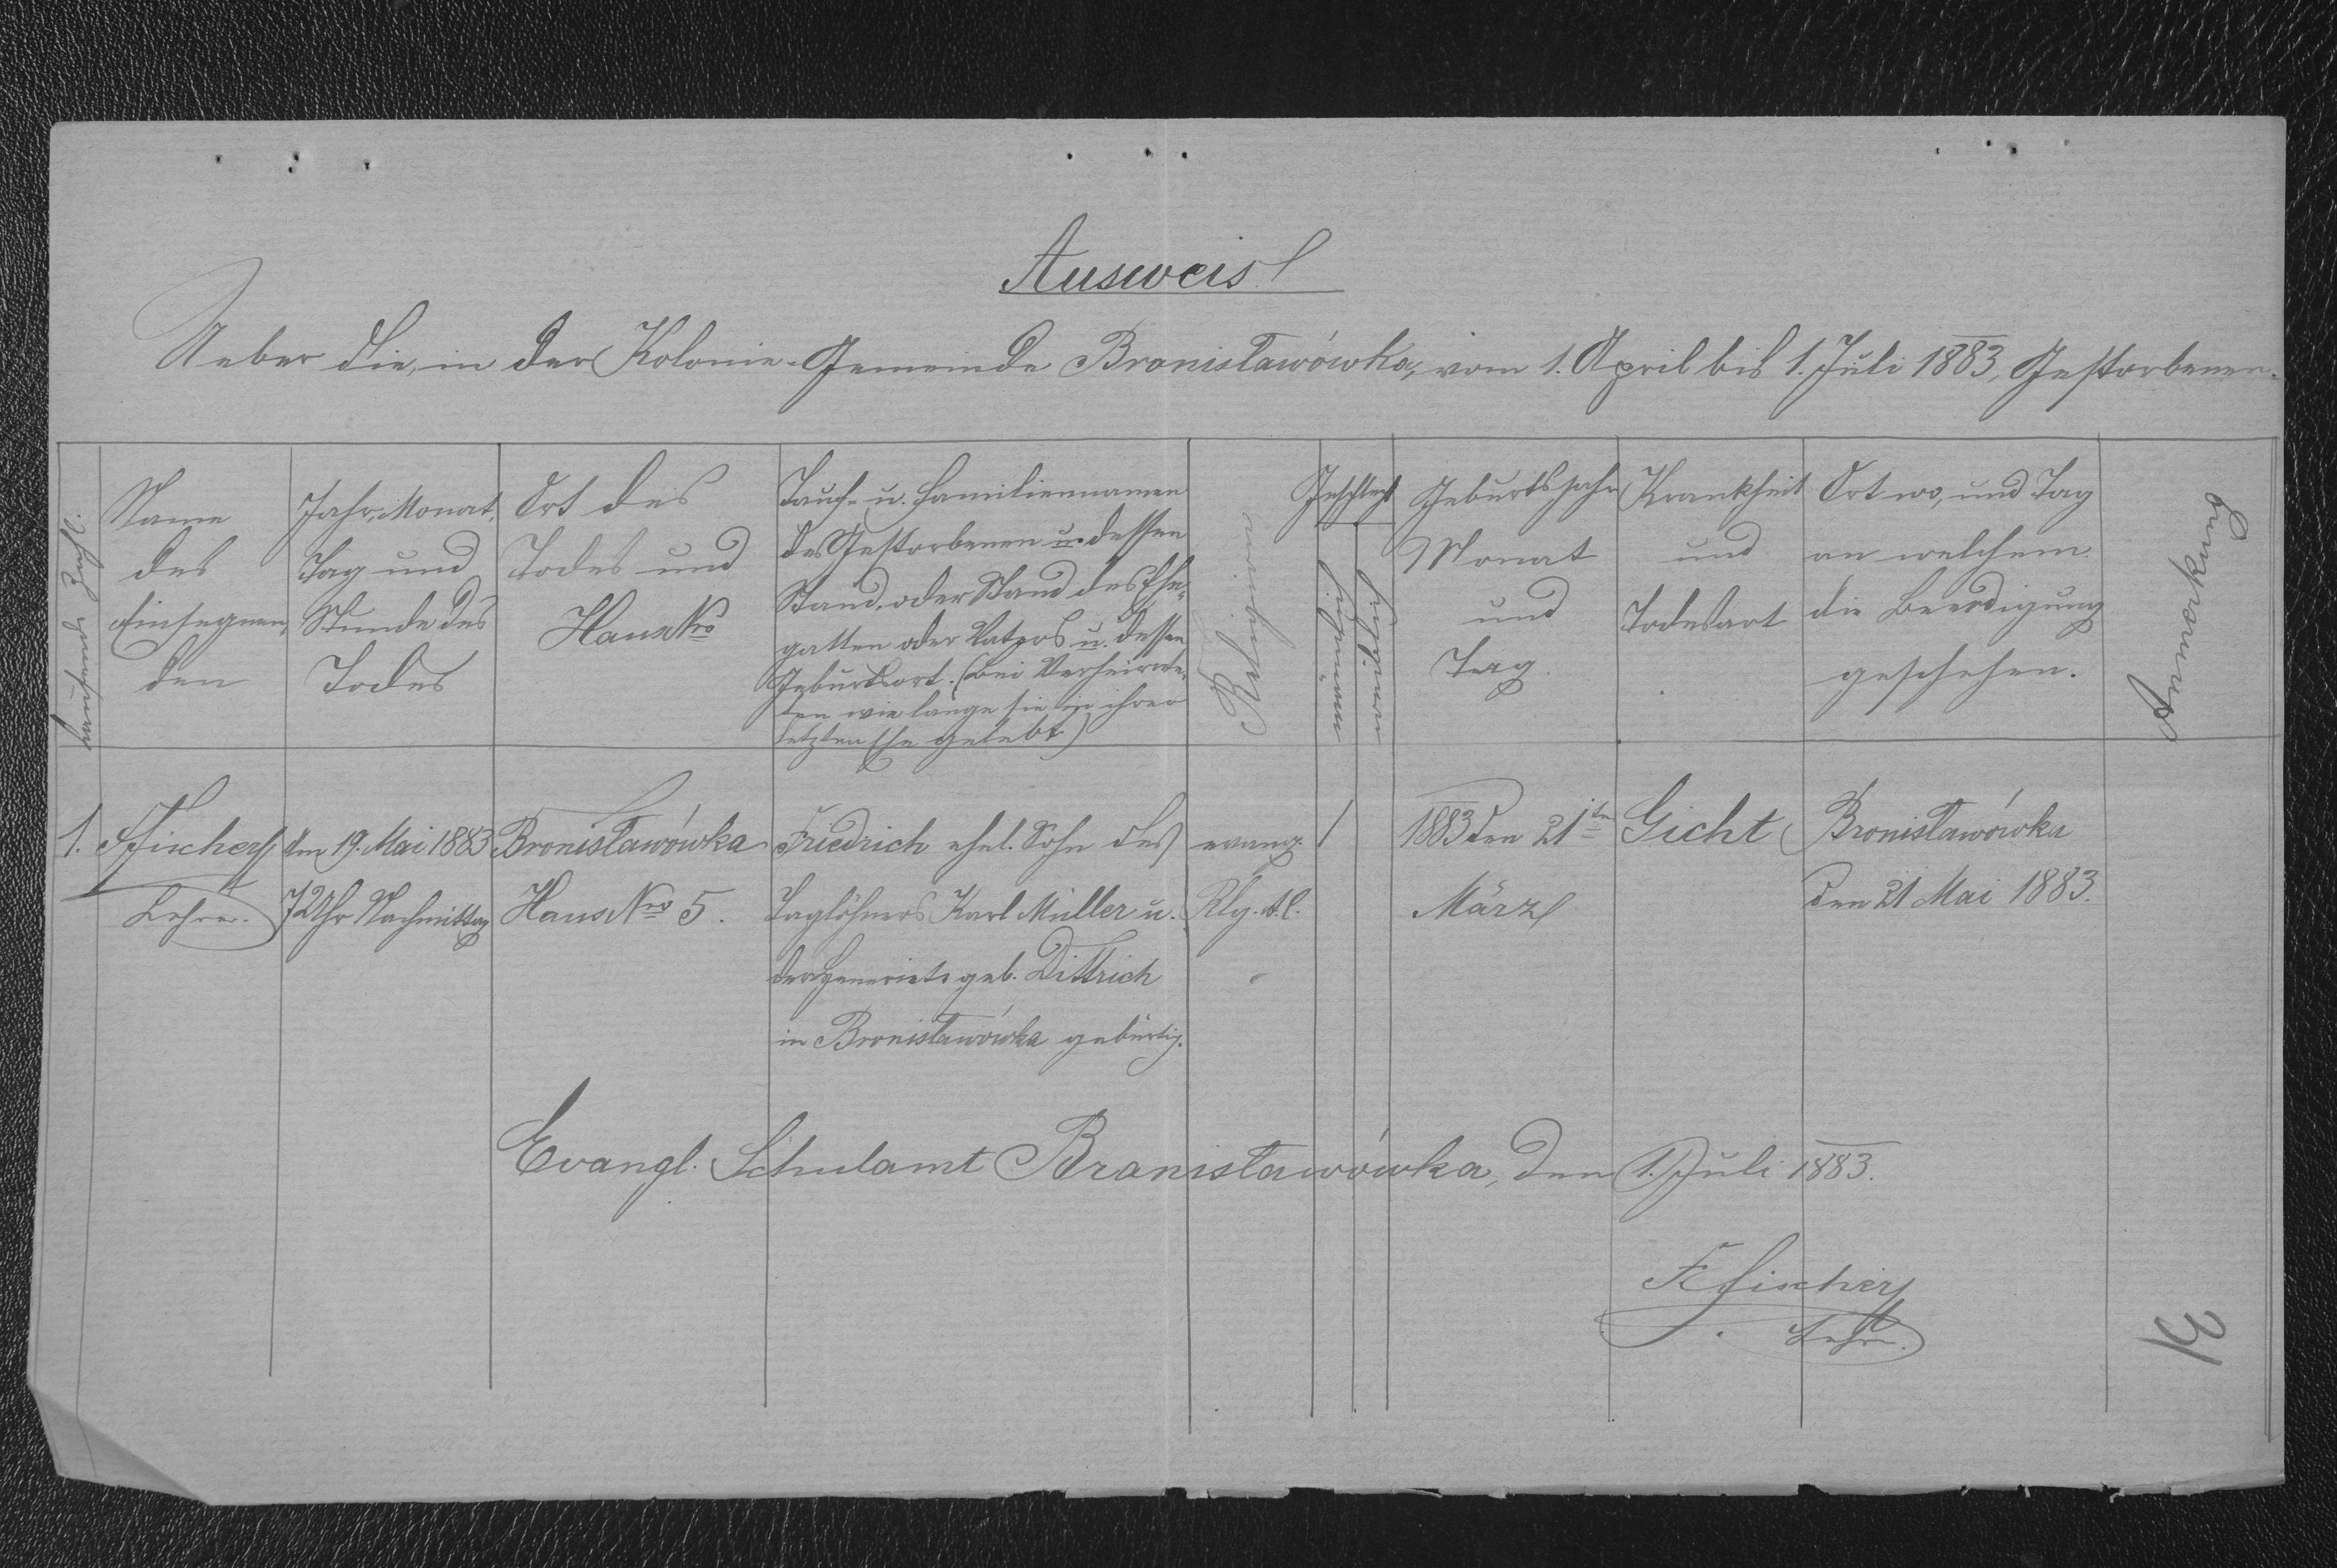 Ausweis
Ueber die, in der Kolonie-Gemeinde Bronisławówka, vom 1. April bis 1. Juli 1883, Gestorbenen.
Laufende Zahl.
Name
des
Einsegnen,
den
Jahr, Monat,
Tag und
Stunde des
Todes
Ort des
Todes und
Haus Nro
Tauf- u. Familiennamen
des Gestorbenen u. dessen
Stand, oder Stand des Ehe-
gatten oder Vaters u. dessen
Geburtsort. (Bei Verheirate-
ten wie lange sie in ihrer
letzten Ehe gelebt.)
Religion
Geschlecht
Geburtsjahr
Monat
und
Tag
Krankheit
und
Todesart
Ort wo, und Tag
an welchem
die Beerdigung
geschehen.
Anmerkung
1. Fischer
Lehrer.
den 19. Mai 1883
72 Uhr Nachmittag
Bronisławówka
Haus Nro 5.
Friedrich ehel. Sohn des
Taglöhners Karl Müller u.
der Henriete geb. Dittrich
in Bronisławówka gebürtig.
evang.
Rlg. A.C.
1
1883 den 21ten
März
Gicht
Bronisławówka
den 21 Mai 1883.
Evangl. Schulamt Bronisławówka, den 1. Juli 1883.
F Fischer
Lehrer.